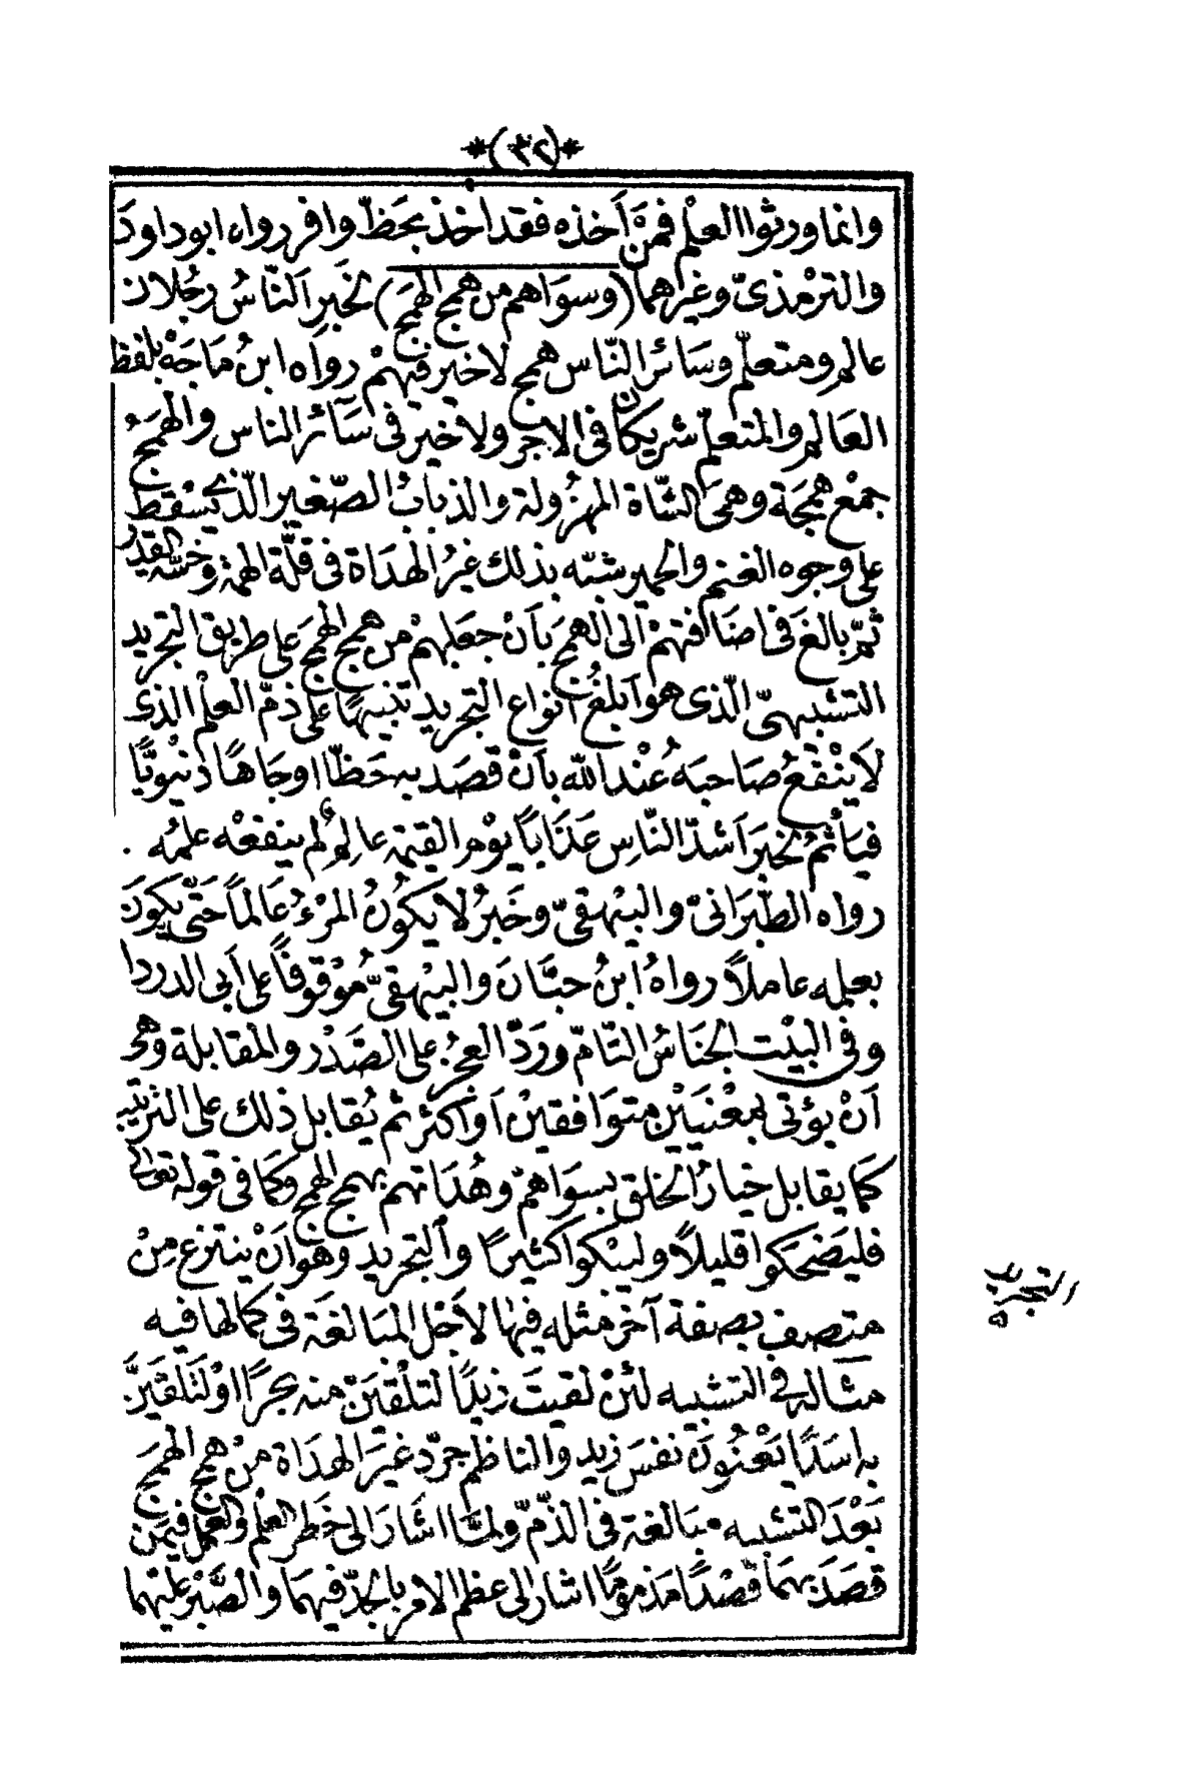 *(٣٢)*
وانما ورثوا العلْم فمَنْ اَخذه فقد اخذ بحَظّ وافر رواه ابو داودَ
والترْمذىّ وغيرهما (وسوَاهم من همج الهمَج) لخبرِ اَلنّاسُ رجُلان
عالم ومتعلّم وسَائر النّاس همج لا خير فيهمْ رواه ابنُ مَاجَهْ بلفظ
العَالم والمتعلّم شريكان فى الاجر ولا خيرَ فى سَآئر الناس والهمَجُ
جمْع همَجَة وهىَ الشّاة المهزُولة والذبابُ الصّغير الّذى يسْقط
على وجوه الغنم والحمير شبّه بذلك غيرُ الهدَاة فى قلّة الهمة وخسّة القدْر
ثمّ بالغَ فى اضَافتهمْ الى الهمَج بأنْ جعَلهمْ من همج الهمَج على طريق التجريد
التشبيهىّ الّذى هو اَبلغُ انواع التجريد تنبيهًا على ذمّ العلْم الذى
لاَ ينْفعُ صَاحبَهُ عنْد الله بأنْ قصَد به حَظّا اوجَاهًا دنيويًّا
فيأثمُ لخبرَ اَشدّ النّاسِ عَذَاباً يوْم القيٰمة عالمٌ لم ينفعْه علمُه .
رواه الطّبرَانىّ والبيْهقىّ وخَبرُ لا يكُونُ المرْءُ عَالماً حَتّى يكونَ
بعلمه عاملاً رواهُ ابنُ حبَّانَ والبيْهقىّ مُوْقوفاً على اَبى الدردا
وفى البيْت الجنَاسُ التّامّ ورَدّ العجُز على الصّدْر والمقابلة وهى
اَنْ يؤتى بمعْنيَيْن متوَافقيْن اَواكثر ثم يُقابل ذلك على الترتيب
كمَا يقابل خيارُ الخلق بسوَاهمْ وهُدَاتهم بهمج الهمج وكمَا فى قوله تعالى
فليَضحَكوا قليلاً وليبْكوا كثيرًا والتجريد وهو اَنْ ينتزع منْ
متصف بصفة آخر مثله فيها لاَجْل المبَالغَة فى كمالها فيه
مثاله فى التشبيه لئنْ لقيتَ زيدًا لتلْقينّ منه بحرًا اوْلتلقينَّ
به اسَدًا يَعْنُونَ نفسَ زيد والناظم جرّد غيَر الهدَاة منْ همج الهمَج
بَعْدَ التشبيه مبَالغة فى الذّمّ ولمّا اشَارَ الى خَطر العلْم والعمل فيمَن
قصَدَ بهمَا قصْدًا مَذمومًا اشار الى عظم الامر بالجدّ فيهمَا والصَّبْر عليْهما
التجريد